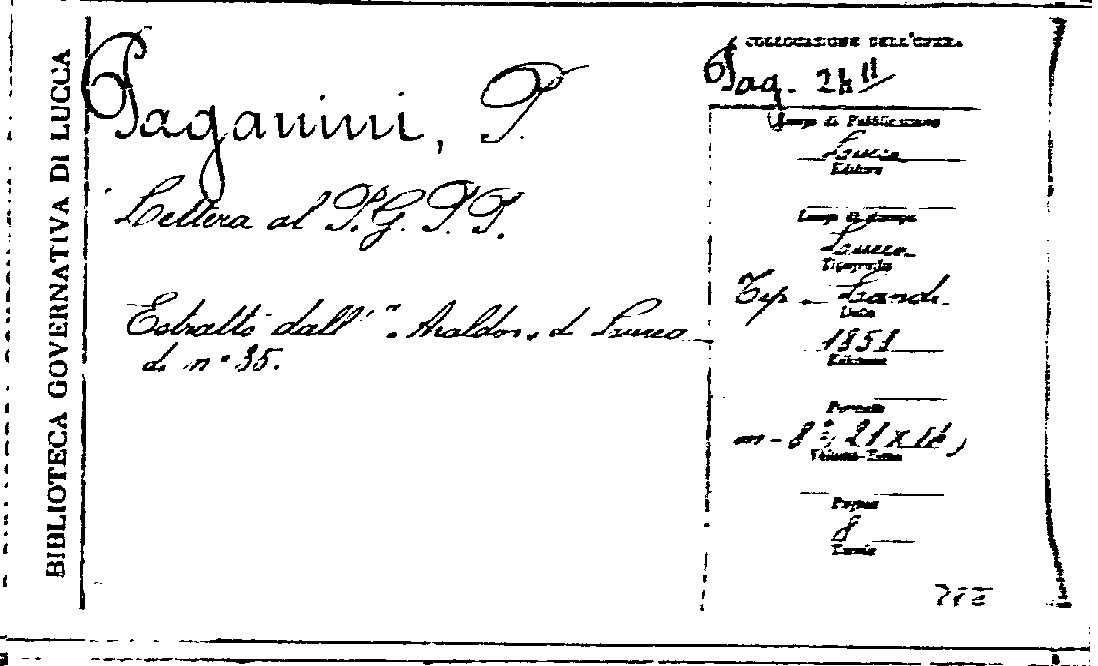 BIBLIOTECA GOVERNATIVA DI LUCCA
Paganini, P.
Lettera al P. G. P. P.
Estratto dall' "Araldo" di Lucca
di n° 35.
COLLOCAZIONE DELL'OPERA
Pag.
Luogo di Pubblicazione
Lucca
Editore
Luogo di stampa
Lucca
Tipografia
Tip. Landi
Data
1851
Edizione
Formato
in-8°
Volume-Tomo
Pagine
8
Tavole